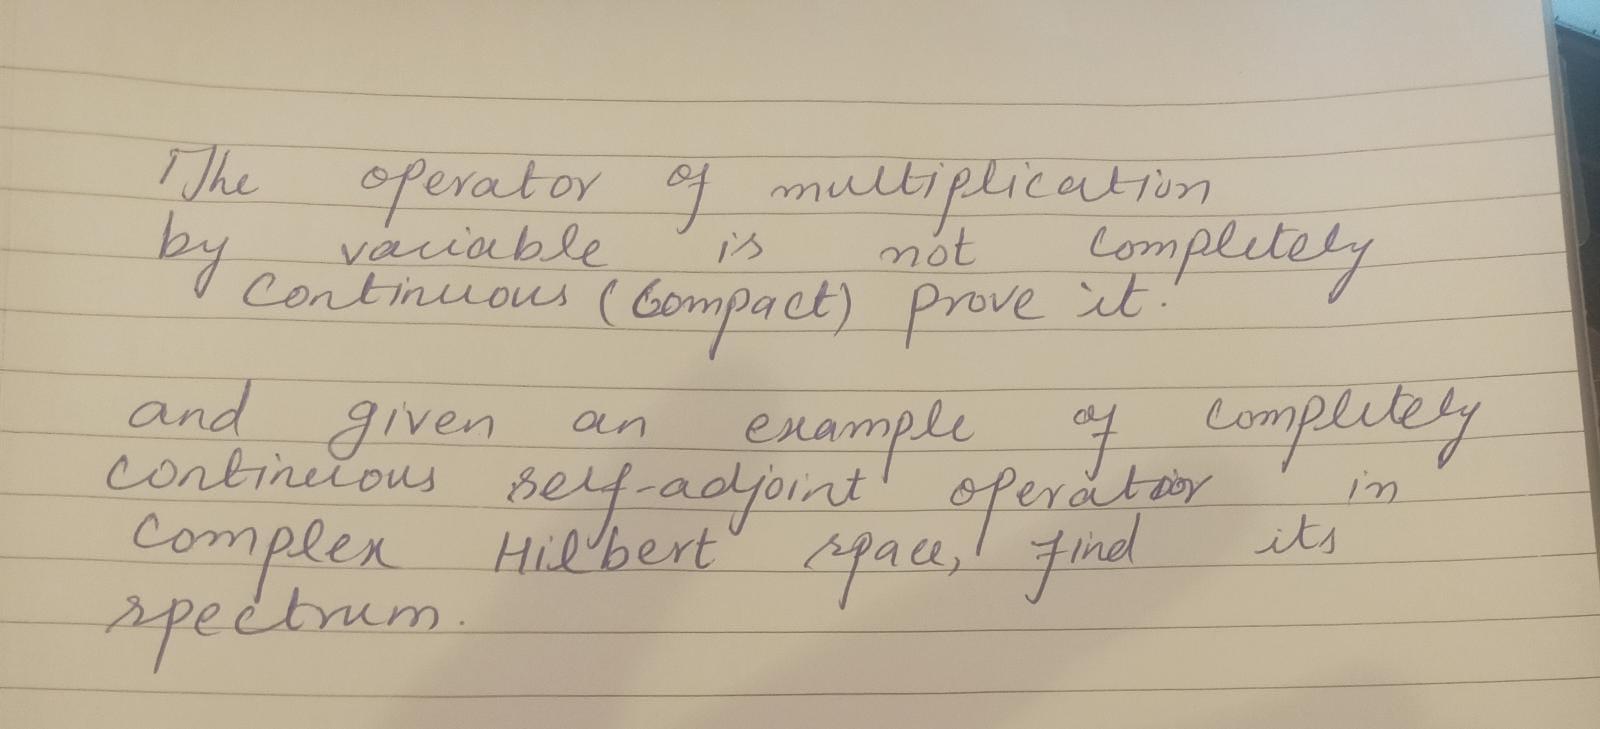 The operator of multiplication
by variable is not completely
continuous (Compact) prove it.
and given an example of completely
continuous self-adjoint operator in
complex Hilbert space, find its
spectrum.